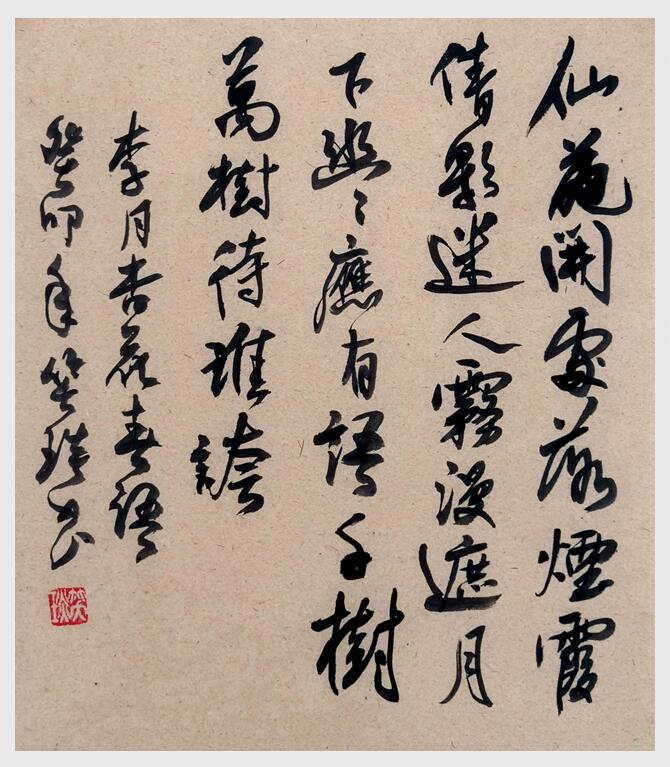 仙葩開處落煙霞
倩影迷人霧漫遮月
下幽幽應有語千樹
萬樹待誰誇
李月杏花春語
癸卯年笑琰書
笑琰